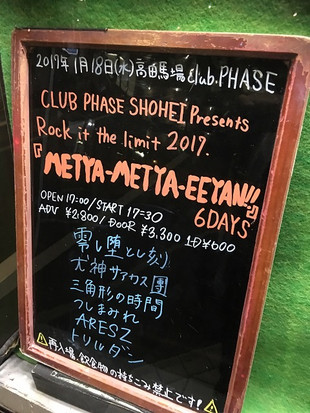 2017年1月18日(水)高田馬場Club.PHASE
CLUB PHASE SHOHEI Presents
Rock it the limit 2017.
『METYA-METYA-EEYAN!!』
6DAYS
OPEN 17:00/START 17:30
ADV ¥2,800/DOOR ¥3,300 1D¥600
零し堕とし刻
犬神サアカス團
三角形の時間
つしまみれ
ARESZ
トリルダン
⚠再入場、飲食物の持ちこみ禁止です!⚠